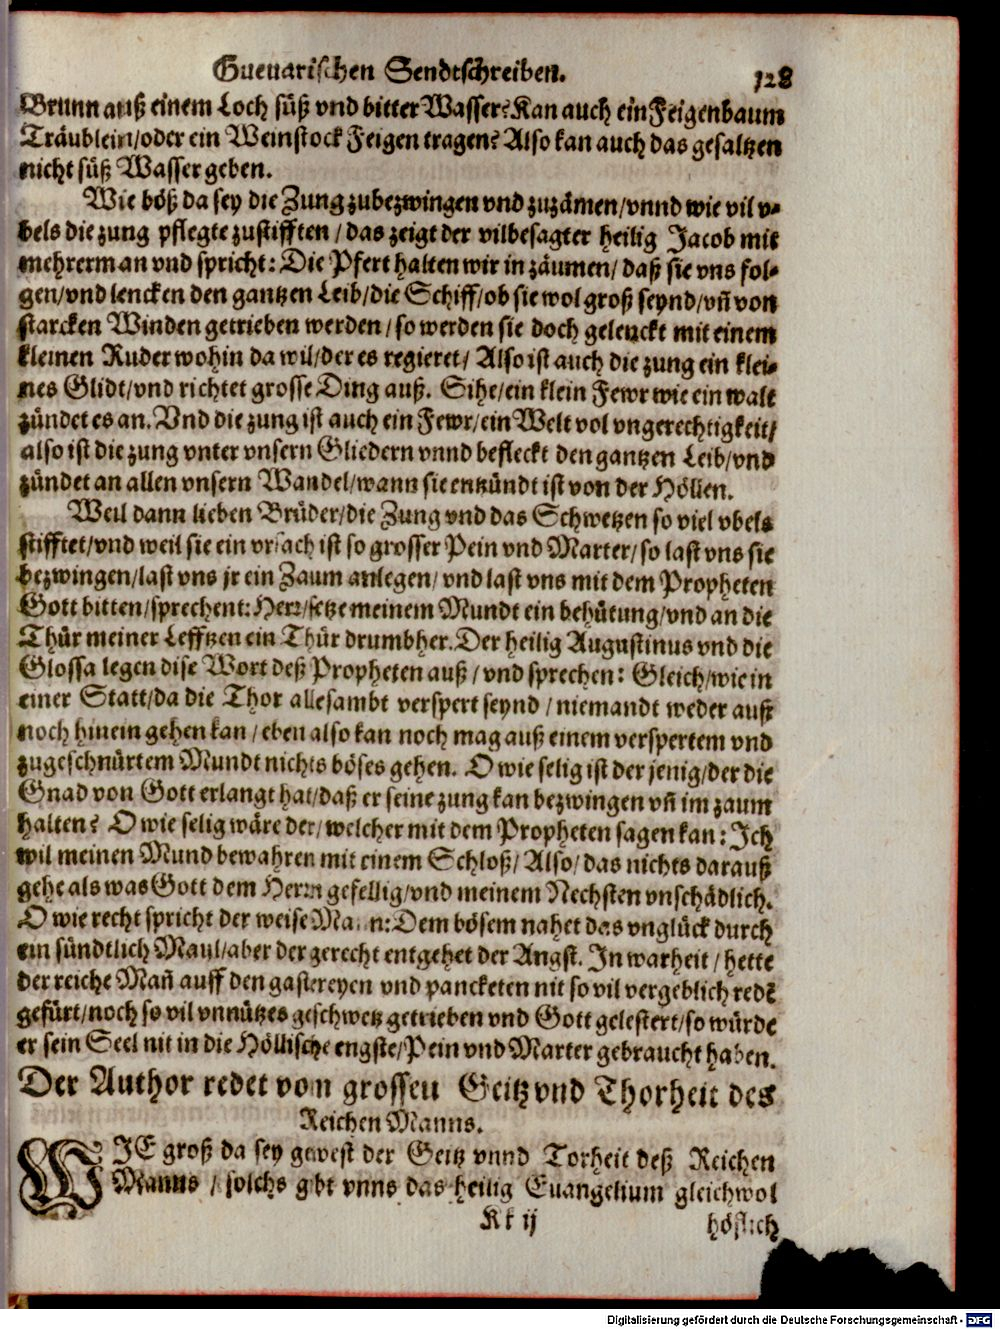 Gueuarischen Sendtschreiben. 128
Brunn auß einem Loch süß vnd bitter Wasser? Kan auch ein Feigenbaum
Träublein/oder ein Weinstock Feigen tragen? Also kan auch das gesaltzen
nicht süß Wasser geben.
Wie böß da sey die Zung zubezwingen vnd zuzämen/vnnd wie vil v-
bels die zung pflegte zustifften / das zeigt der vilbesagter heilig Jacob mit
mehrerm an vnd spricht: Die Pfert halten wir in zäumen/ daß sie vns fol-
gen/vnd lencken den gantzen Leib/die Schiff/ob sie wol groß seynd/vñ von
starcken Winden getrieben werden / so werden sie doch gelenckt mit einem
kleinen Ruder wohin da wil/der es regieret/ Also ist auch die zung ein klei-
nes Glidt/vnd richtet grosse Ding auß. Sihe/ein klein Fewr wie ein walt
zündet es an. Vnd die zung ist auch ein Fewr/ein Welt vol vngerechtigkeit/
also ist die zung vnter vnsern Gliedern vnnd befleckt den gantzen Leib/vnd
zündet an allen vnsern Wandel/wann sie entzündt ist von der Höllen.
Weil dann lieben Brüder/die Zung vnd das Schwetzen so viel vbels
stifftet/vnd weil sie ein vrsach ist so grosser Pein vnd Marter/so last vns sie
bezwingen/last vns jr ein Zaum anlegen/ vnd last vns mit dem Propheten
Gott bitten/sprechent: Herr/setze meinem Mundt ein behütung/vnd an die
Thür meiner Lefftzen ein Thür drumbher. Der heilig Augustinus vnd die
Glossa legen dise Wort deß Propheten auß / vnd sprechen: Gleich/wie in
einer Statt/da die Thor allesambt verspert seynd / niemandt weder auß
noch hinein gehen kan / eben also kan noch mag auß einem verspertem vnd
zugeschnürtem Mundt nichts böses gehen. O wie selig ist der jenig/der die
Gnad von Gott erlangt hat/daß er seine zung kan bezwingen vñ im zaum
halten? O wie selig wäre der/welcher mit dem Propheten sagen kan: Jch
wil meinen Mund bewahren mit einem Schloß/ Also/ das nichts darauß
gehe als was Gott dem Herrn gefellig/vnd meinem Nechsten vnschädlich.
O wie recht spricht der weise Mann: Dem bösem nahet das vnglück durch
ein sündtlich Maul/aber der gerecht entgehet der Angst. Jn warheit / hette
der reiche Mañ auff den gastereyen vnd pancketen nit so vil vergeblich redẽ
gefürt/noch so vil vnnützes geschwetz getrieben vnd Gott gelestert/so würde
er sein Seel nit in die Höllische engste/Pein vnd Marter gebraucht haben.
Der Author redet vom grossen Geitz vnd Thorheit des
Reichen Manns.
WJE groß da sey gewest der Geitz vnnd Torheit deß Reichen
Manns / solchs gibt vnns das heilig Euangelium gleichwol
Kk ij höflich
Digitalisierung gefördert durch die Deutsche Forschungsgemeinschaft - DFG